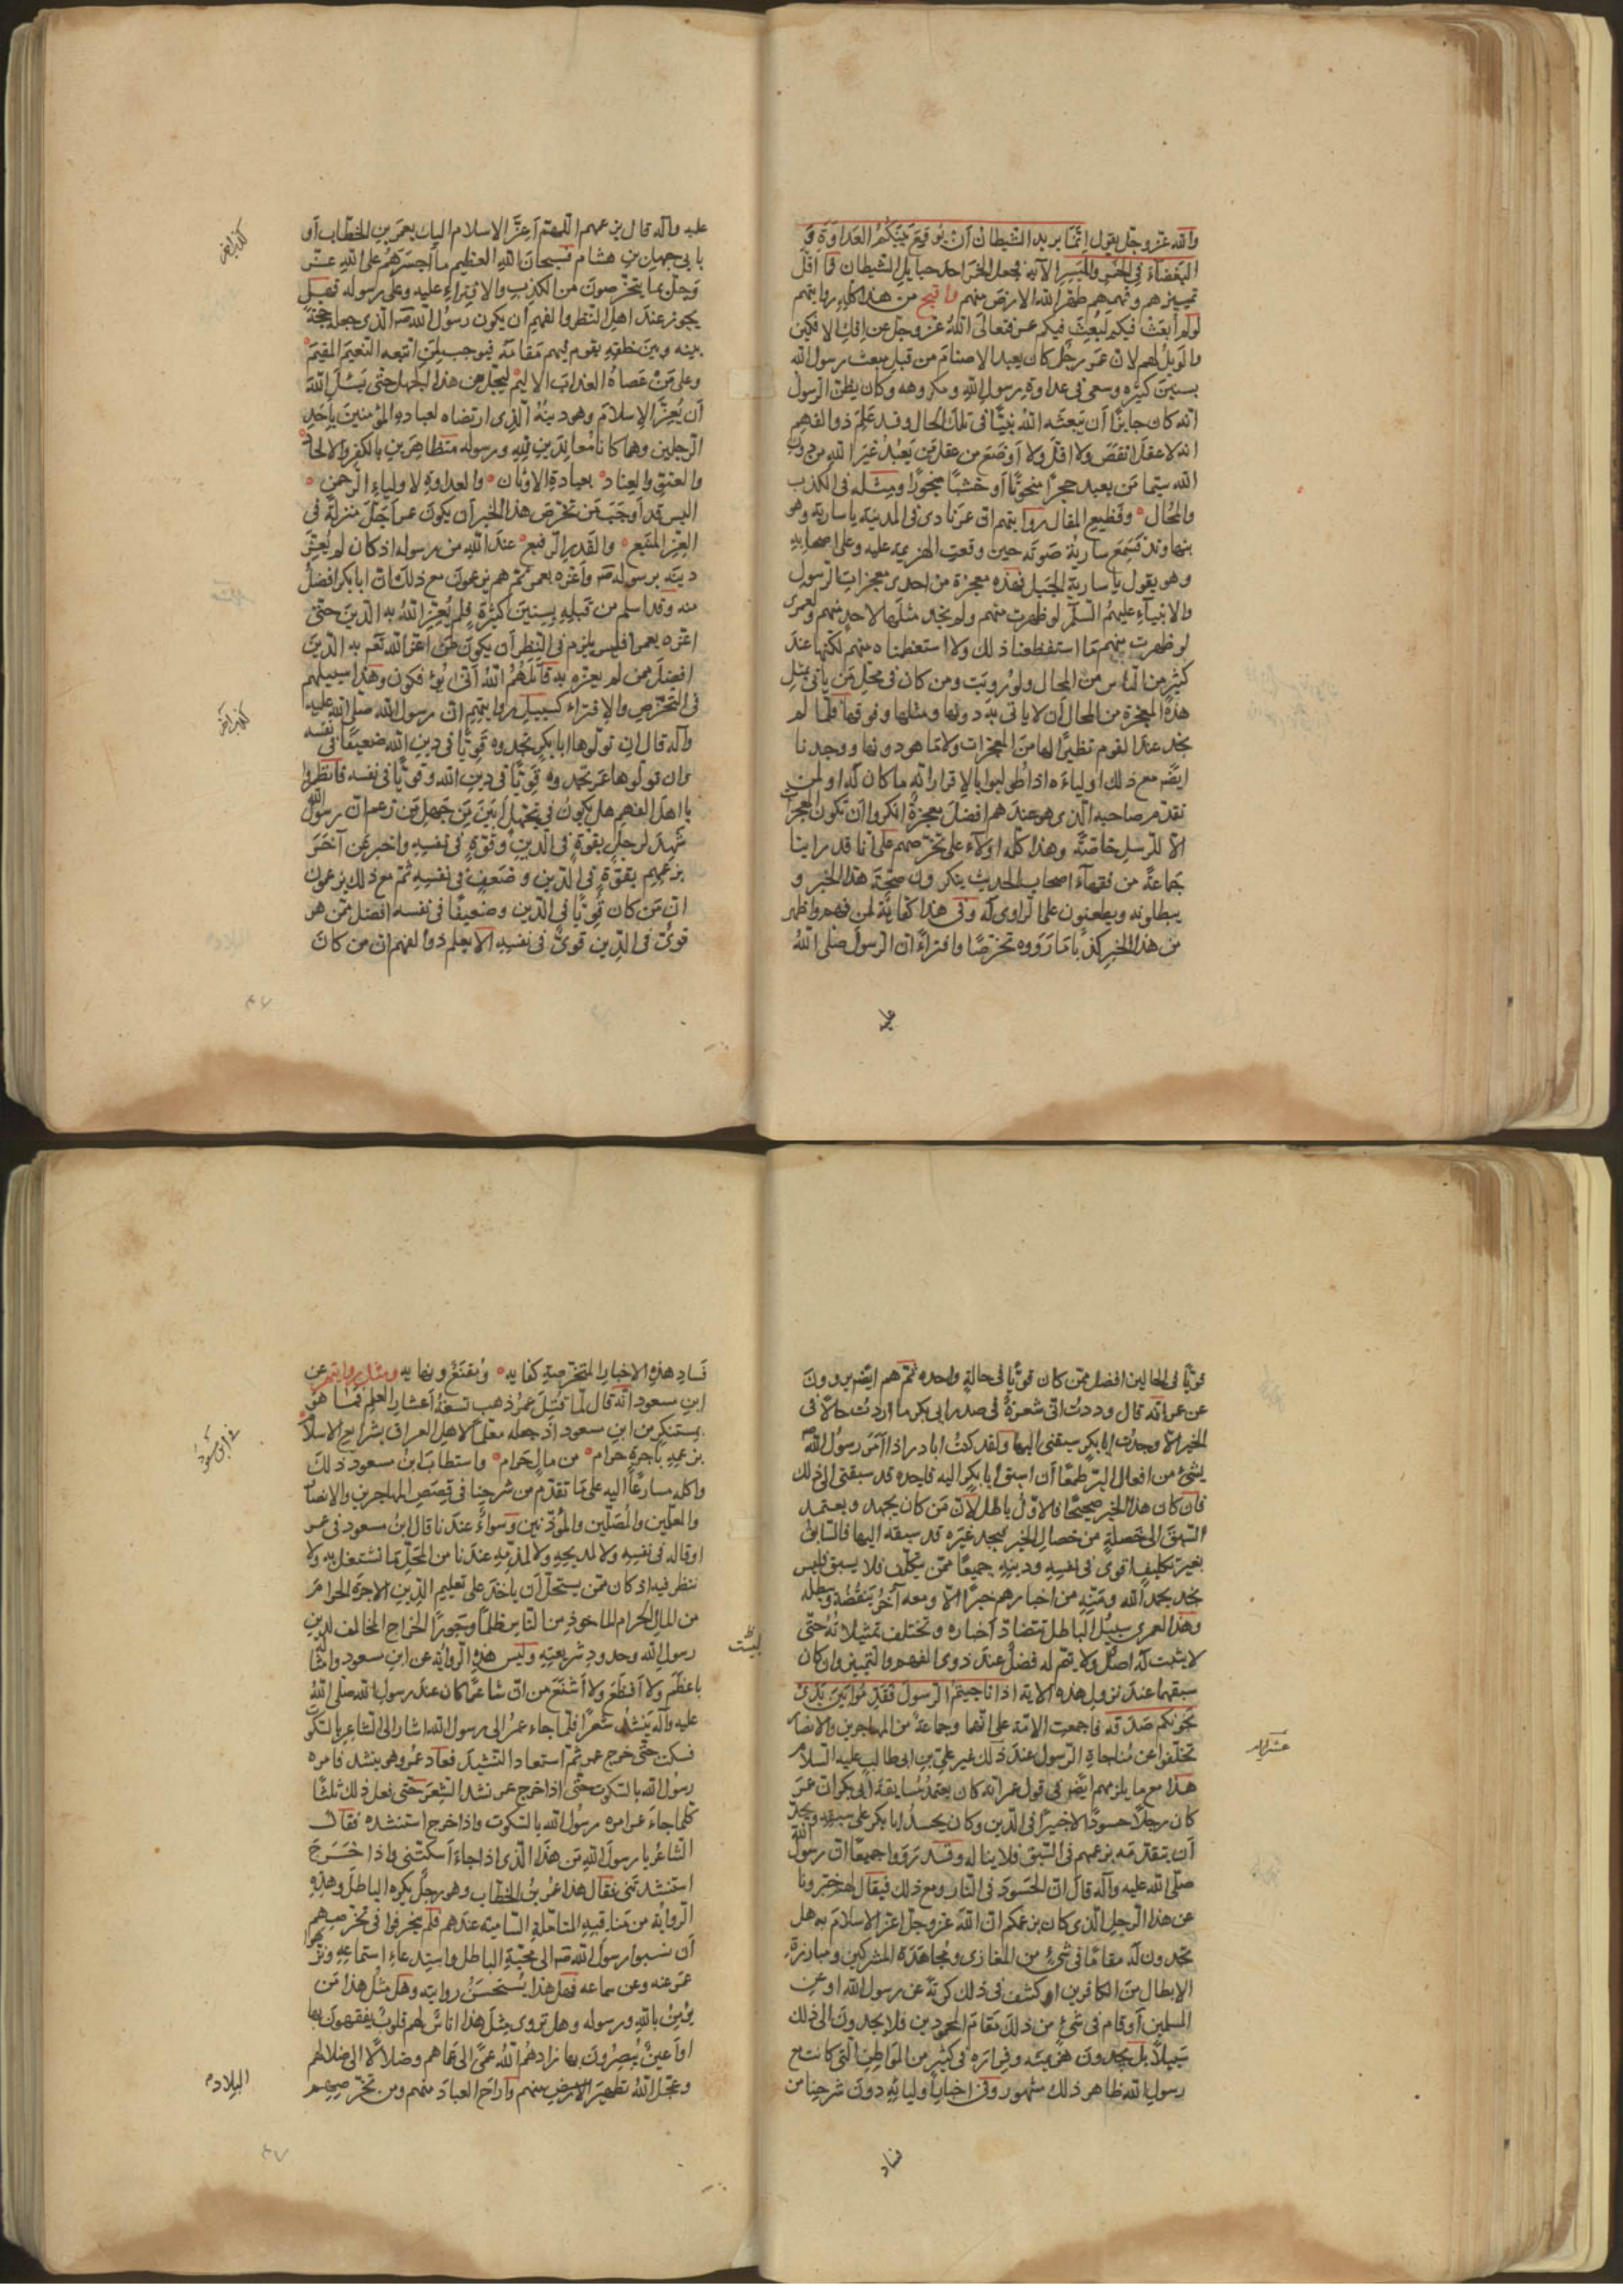 والله عز وجل يقول إنما يريد الشيطان أن يوقع بينكم العداوة و
البغضاء في الخمر والميسر الآية فجعل الخمر احد حبايل الشيطان فما اقل
تمييزهم وفهمهم طهر الله الارض منهم واقبح من هذا كله روايتهم
لو لم أبعث فيكم لبعث فيكم عمر فتعالى الله عز وجل عن إفك الافكين
والويل لهم لان عمر رجل كان يعبد الاصنام من قبل مبعث رسول الله
بسنين كثيرة وسعى في عداوة رسول الله ومكروهه وكان يظن الرسول
انه كان جايزا أن يبعثه الله نبيا في تلك الحال وقد علم ذو الفهم
انه لا عقل انقص ولا اقل ولا أوضع من عقل من يعبد غير الله من دون
الله سيما من يعبد حجرا منحوتا أو خشبا منجورا ومثله في الكذب
والمحال وفظيع المقال روايتهم ان عمر نادى في المدينة يا سارية وهو
بنهاوند فسمع سارية صوته حين وقعت الهزيمة عليه وعلى اصحابه
وهو يقول يا سارية الجبل فهذه معجزة من احدى معجزات الرسول
والانبياء عليهم السلم لو ظهرت منهم ولم نجد مثلها لاحد منهم ولعمرى
لو ظهرت منهم ما استفظعنا ذلك ولا استعظمناه منهم لكنها عند
كثير من الناس من المحال ولو رويت ومن كان في محل من يأتي بمثل
هذه المعجزة من المحال أن لا ياتى به دونها ومثلها وفوقها فلما لم
نجد عند القوم نظيرا لها من المعجزات ولا ما هو دونها ووجدنا
ايضا مع ذلك اولياءه اذا طولبوا بالاقرار انه ما كان له او لمن
تقدم صاحبه الذى هو عندهم افضل معجزة انكروا ان تكون المعجزات
الا للرسل خاصة وهذا كله دلاء على تخرصهم على انا قد راينا
جماعة من فقهاء اصحاب الحديث ينكرون صحة هذا الخبر و
يبطلونه ويطعنون على الراوى له وفى هذا كفاية لمن فهم واظهر
من هذا الخبر كذبا ما رووه تخرصا وافتراء ان الرسول صلى الله
عليه
عليه وآله قال بزعمهم اللهم أعز الاسلام اليك بعمر بن الخطاب أو
بابى جهل بن هشام فسبحان الله العظيم ما اجسرهم على الله عز
وجل بما يتخرصون من الكذب والافتراء عليه وعلى رسوله فهل
يجوز عند اهل النظر والفهم أن يكون رسول الله الذى جعله حجة
بينه وبين خلقه يقوم فيهم مقامه فيوجب لمن اتبعه النعيم المقيم
وعلى من عصاه العذاب الاليم ليجعل من هذا الجهل حتى يسئل الله
أن يعز الإسلام وهو دينه الذي ارتضاه لعباده المؤمنين بأحد
الرجلين وهما كانا معاندين لله ورسوله متظاهرين بالكفر والالحاد
والعتق والعناد بعبادة الاوثان والعداوة لاولياء الرحمن
اليس قد أوجب من تخرص هذا الخبر أن يكون عمر أجل منزلة في
العز المنيع والقدر الرفيع عند الله من رسوله اذ كان لم يعز
دينه برسوله وأعزه بعمر ثم هم يزعمون مع ذلك ان ابا بكر افضل
منه وقد اسلم من قبله بسنين كثيرة فلم يعز الله به الدين حتى
اعزه بعمر أفليس يلزم في النظر أن يكون من اعز الله به الدين
افضل ممن لم يعزه به قاتلهم الله أنى يؤفكون وهذا سبيلهم
فى التخرص والافتراء كسبيل روايتهم ان رسول الله صلى الله عليه
وآله قال ان تولوها ابا بكر تجدوه قويا في دين الله ضعيفا في نفسه
وان تولوها عمر تجدوه قويا في دين الله وقويا في نفسه فانظروا
يا اهل الفهم هل يكون في جهل أبين من جهل من زعم ان رسول الله
شهد لرجل بقوة في الدين وقوة في نفسه واخبر عن آخر
بزعمهم بقوة في الدين وضعف في نفسه ثم مع ذلك يزعمون
ان من كان قويا في الدين وضعيفا في نفسه افضل ممن هو
قوى في الدين قوى في نفسه الا يعلم ذوا لفهم ان من كان
قويا في الحالين افضل ممن كان قويا في حالة واحده ثم هم ايضا يروون
عن عمر انه قال وددت انى شعرة في صدر ابى بكر ما اردت حالا في
الخير الا وجدت ابا بكر سبقنى اليها ولقد كنت ابادر اذا امر رسول الله
بشئ من افعال البر طمعا أن اسبق ابا بكر اليه فاجده قد سبقنى الى ذلك
فان كان هذا الخبر صحيحا فالاول باطل لان من كان يجهد ويعتمد
السبق الى خصلة من خصال الخير فيجد غيره قد سبقه اليها فالسابق
بغير تكليف اقوى في نفسه ودينه جميعا ممن يتكلف فلا يسبق فليس
نجد بحمد الله ومنه من اخبارهم خبرا الا ومعه آخر ينقضه ويبطله
وهذا لعمرى سبيل الباطل تتضاد أخباره وتختلف تمثيلاته حتى
لا يثبت له اصل ولا يتم له فضل عند ذوى الفهم والتمييز واو كان
سبقهما عند نزول هذه الاية اذا ناجيتم الرسول فقدموا بين يدى
نجوىكم صدقة فاجمعت الامة على انهما وجماعة من المهاجرين والانصار
تخلفوا عن مناجاة الرسول عند ذلك غير على بن ابى طالب عليه السلام
هذا مع ما يلزمهم ايضا في قول عمر انه كان يعتمد مسابقة ابى بكر ان عمر
كان رجلا حسودا لاخيرا في الدين وكان يحسد ابا بكر على سبقه ويجد
أن يتقدمه بزعمهم في السبق فلا يناله وقد رووا جميعا ان رسول الله
صلى الله عليه وآله قال ان الحسود في النار ومع ذلك فيقال لهم خبرونا
عن هذا الرجل الذى كان بزعمكم ان الله عز وجل اعز الاسلام به هل
تجدون له مقاما في شئ من المغازى ومجاهدة المشركين ومبارزة
الابطال من الكافرين او كشف في ذلك كربة عن رسول الله او عن
المسلمين أو قام في شئ من ذلك مقام المحمودين فلا يجدون الى ذلك
سبيلا بل يجدون هزيمته وفراره في كثير من المواطن التى كانت مع
رسول الله ظاهر ذلك مشهور وفى اخبار اوليائه دون شرحنا من
فساد
فساد هذه الاخبار المتخرصة كفاية ومقنع ونهاية ومثل روايتهم عن
ابن مسعود انه قال لما قتل عمر ذهب تسعة أعشار العلم فما هو
بمستنكر من ابن مسعود اذ جعله معلما لاهل العراق بشرايع الاسلام
بزعمه باجرة حرام من مال حرام واستطاب ابن مسعود ذلك
واكله مسارعا اليه على ما تقدم من شرحنا في قصص المهاجرين والانصار
والمعلمين والمصلين والمؤذنين وسواء عندنا قال ابن مسعود في عمر
او قاله في نفسه ولا لمديحه ولا لمذمته عندنا من المحل ما نشتغل به ولا
ننظر فيه اذ كان ممن يستحل أن ياخذ على تعليم الدين الاجرة الحرام
من المال الحرام الماخوذ من الناس ظلما وجورا الخراج المخالف لدين
رسول الله وحدود شريعته وليس هذه الرواية عن ابن مسعود وامثالها
باعظم ولا أفظع ولا أشنع من ان شاعرا كان عند رسول الله صلى الله
عليه وآله ينشد شعرا فلما جاء عمر الى رسول الله اشار الى الشاعر بالسكوت
فسكت حتى خرج عمر ثم استعاد النشيد فعاد عمر وهو ينشد فامره
رسول الله بالسكوت حتى اذا خرج عمر نشد الشعر حتى فعل ذلك ثلثا
كلما جاء عمر امره رسول الله بالسكوت واذا خرج استنشده فقال
الشاعر يا رسول الله من هذا الذى اذا جاء أسكتنى واذا خرج
استنشدتنى فقال هذا عمر بن الخطاب وهو رجل يكره الباطل وهذه
الرواية من مناقبه المتاملة السامية عندهم فلم يخرفوا في تخرصهم
أن نسبوا رسول الله الى محبة الباطل واستدعاء استماعه ونزهوا
عمر عنه وعن سماعه فهل هذا يستحسن روايته وهل مثل هذا من
يؤمن بالله ورسوله وهل تروى مثل هذا اناس لهم قلوب يفقهون بها
او أعين يبصرون بها زادهم الله عمى الى عماهم وضلالا الى ضلالهم
وعجل الله تطهير الارض منهم واراح العباد منهم ومن تخرصهم